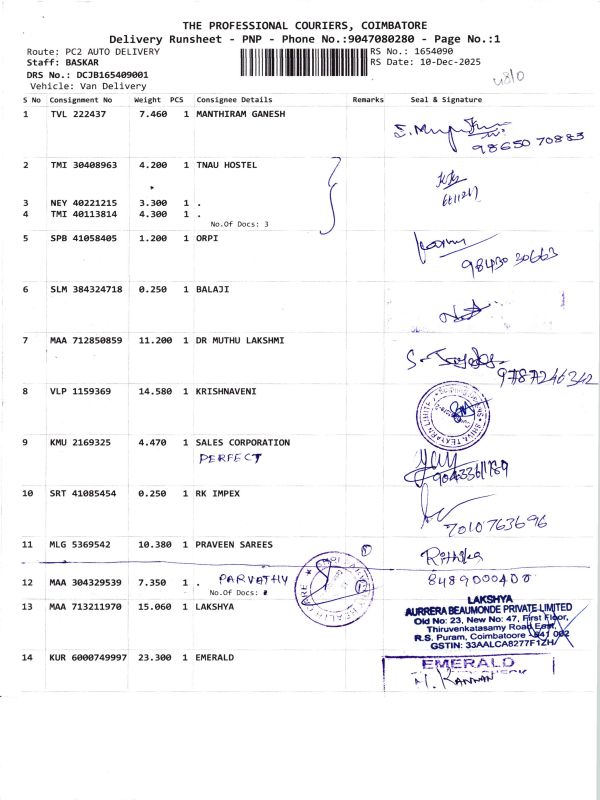 THE PROFESSIONAL COURIERS, COIMBATORE
Delivery Runsheet - PNP - Phone No.:9047080280 - Page No.:1
Route: PC2 AUTO DELIVERY RS No.: 1654090
Staff: BASKAR RS Date: 10-Dec-2025
DRS No.: DCJB165409001
Vehicle: Van Delivery
S No Consignment No Weight PCS Consignee Details Remarks Seal & Signature
1 TVL 222437 7.460 1 MANTHIRAM GANESH
98650 70883
2 TMI 30408963 4.200 1 TNAU HOSTEL
3 NEY 40221215 3.300 1 .
4 TMI 40113814 4.300 1 .
No.Of Docs: 3
5 SPB 41058405 1.200 1 ORPI
98430 30663
6 SLM 384324718 0.250 1 BALAJI
7 MAA 712850859 11.200 1 DR MUTHU LAKSHMI
9787246342
8 VLP 1159369 14.580 1 KRISHNAVENI
9 KMU 2169325 4.470 1 SALES CORPORATION
PERFECT
10 SRT 41085454 0.250 1 RK IMPEX
7010763696
11 MLG 5369542 10.380 1 PRAVEEN SAREES
12 MAA 304329539 7.350 1 . PARVATHY 8489000400
No.Of Docs:
13 MAA 713211970 15.060 1 LAKSHYA
LAKSHYA
AURRERA BEAUMONDE PRIVATE LIMITED
Old No: 23, New No: 47, First Floor,
Thiruvenkatasamy Road East,
R.S. Puram, Coimbatoore - 641 002
GSTIN: 33AALCA8277F1ZH
14 KUR 6000749997 23.300 1 EMERALD
EMERALD
M. KANNAN